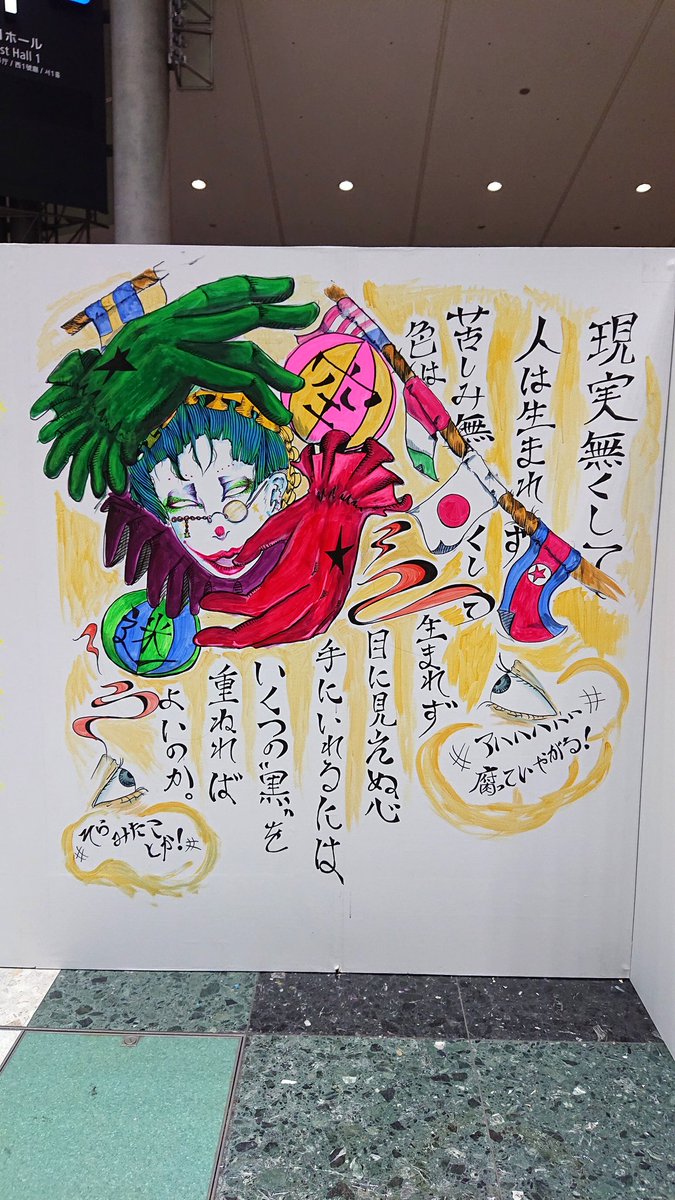 1ホール
st Hall 1
庁 / 西1號廳 / 서1홀
現実無くして
人は生まれず
苦しみ無くして
色は生まれず
目に見えぬ心
手にいれるには、
いくつの"黒"を
重ねれば
よいのか。
腐っていやがる!
そらみたこ
とか!